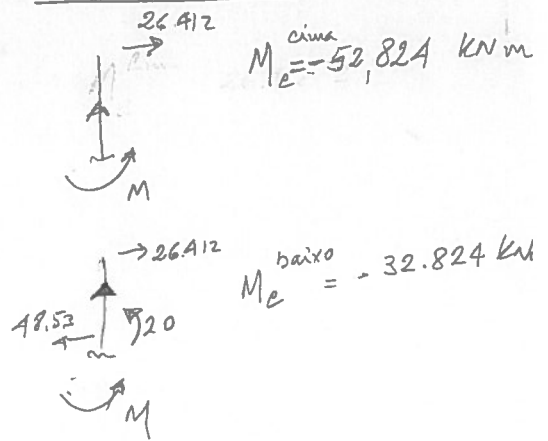 26.412
M_e^cima = -52,824 kNm
M
26.412
M_e^baixo = - 32.824 kN
48.53
20
M